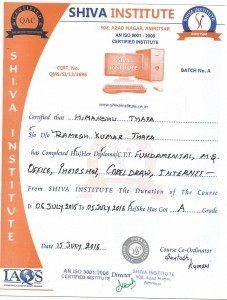 SHIVA INSTITUTE
508, AZAD NAGAR, AMRITSAR
AN ISO 9001 : 2008
CERTIFIED INSTITUTE
QAC
CERT. NO.
QMS/SI/12/1696
BATCH No. A
SHIVA INSTITUTE
www.shivainstitute.co.in
Certified that HIMANSHU THAPA
S/o D/o RAMESH KUMAR THAPA
has Completed His/Her Diploma/C.T.T. FUNDAMENTAL, M.S.
OFFICE, PHOTOSHOP, CORELDRAW, INTERNET —
From SHIVA INSTITUTE The Duration of The Course
is 06 JULY 2015 To 05 JULY 2016 He/She Has Got A Grade
Date 15 JULY 2016
Course Co-Ordinator
Santosh
Kumari
AN ISO 9001:2008
CERTIFIED INSTITUTE
Director
SHIVA INSTITUTE
508, AZAD NAGAR,
AMRITSAR
IAQS